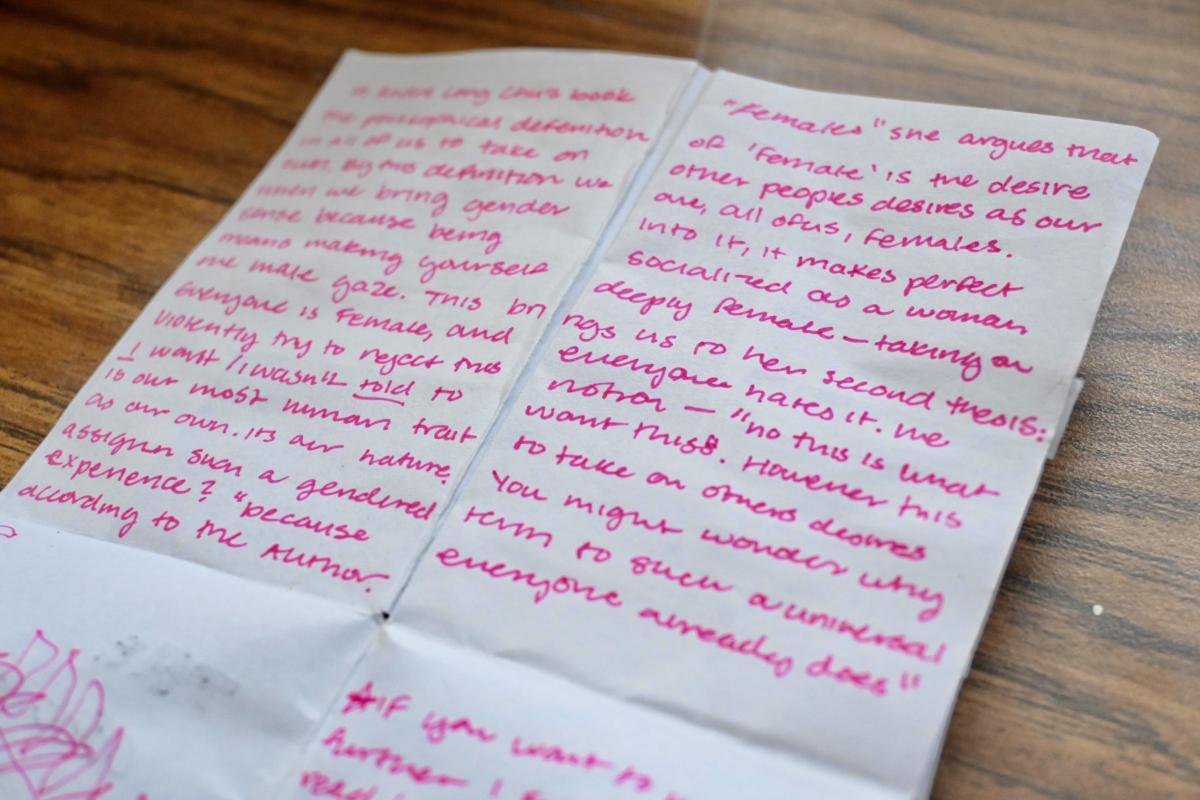 In Andrea Long Chu's book "Females" she argues that
the philosophical defenition of 'female' is the desire
in all of us to take on other peoples desires as our
own. By this definition we are, all of us, females.
when we bring gender into it, it makes perfect
sense because being socialized as a woman
means making yourself deeply female – taking on
the male gaze. This bri ngs us to her second thesis:
Everyone is Female, and everyone hates it. We
violently try to reject this notion – "no this is what
I want / I wasn't told to want this". However this
is our most human trait to take on others desires
as our own. its our nature. You might wonder why
assign such a gendered term to such a universal
experience? "because everyone already does"
according to the Author.
*if you want to
further I
read